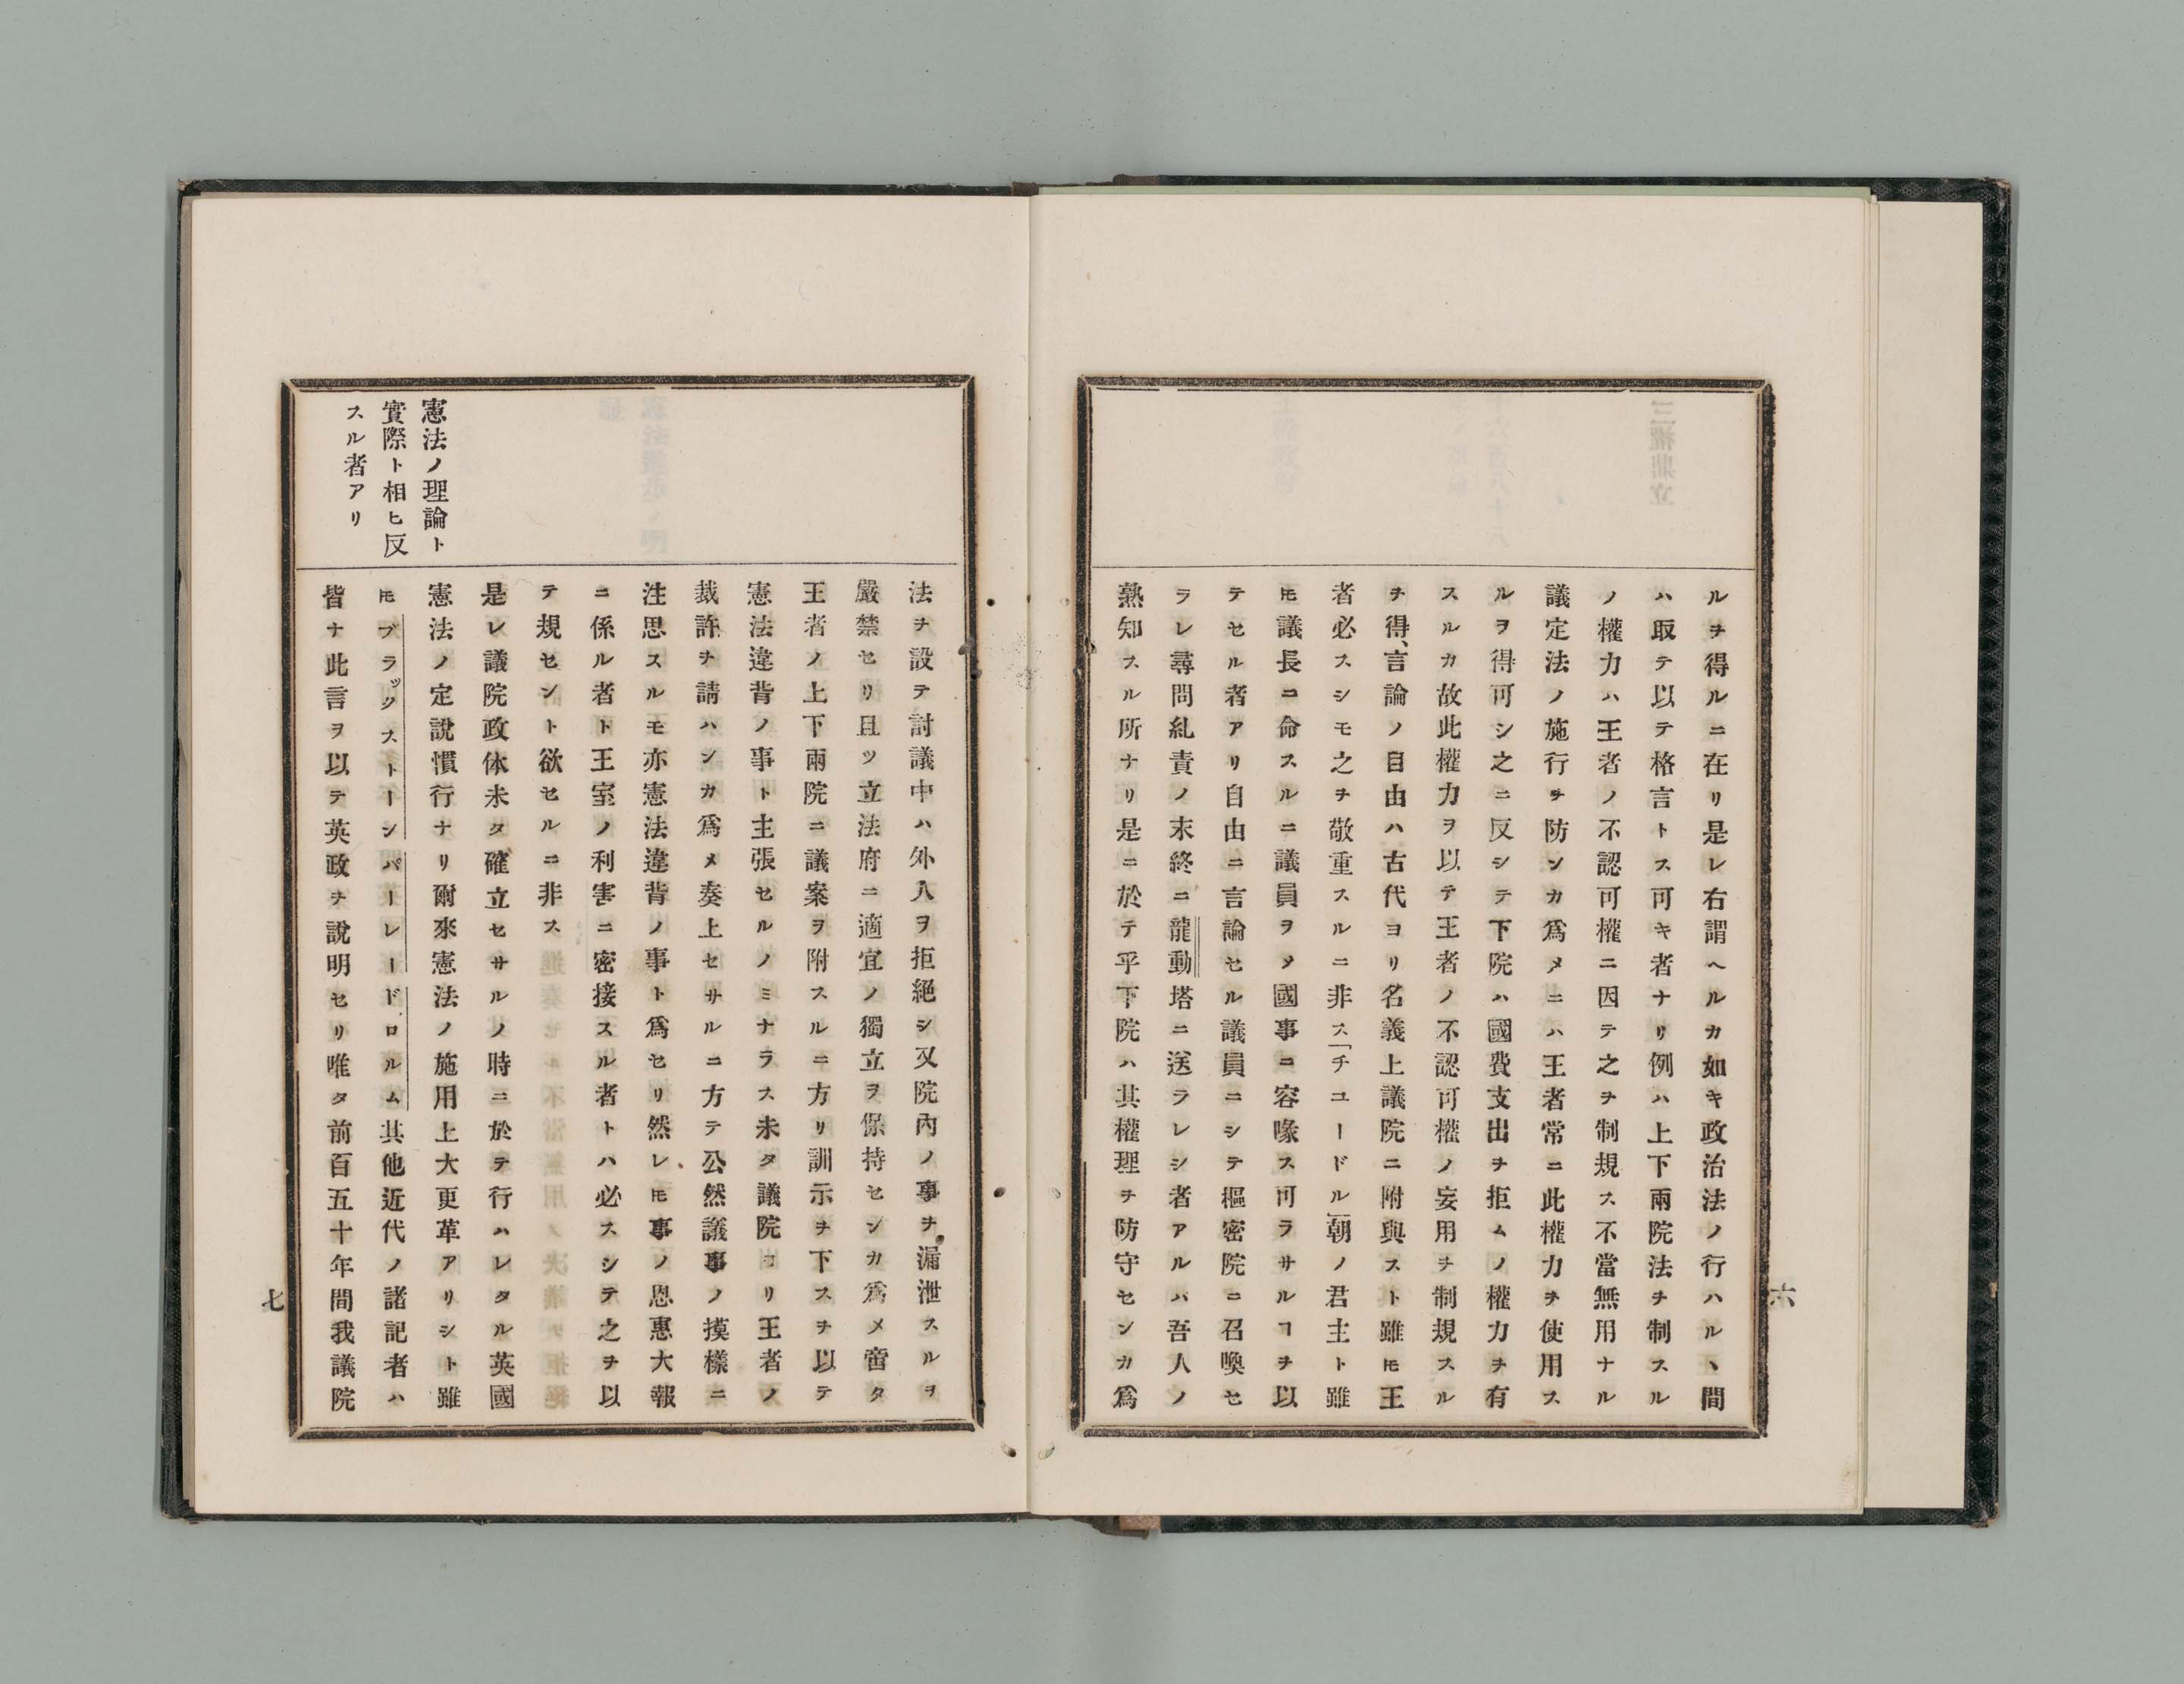 ルヲ得ルニ在リ是レ右謂ヘルカ如キ政治法ノ行ハルヽ間
ハ取テ以テ格言トス可キ者ナリ例ハ上下兩院法ヲ制スル
ノ權力ハ王者ノ不認可權ニ因テ之ヲ制規ス不當無用ナル
議定法ノ施行ヲ防ンカ爲メニハ王者常ニ此權力ヲ使用ス
ルヲ得可シ之ニ反シテ下院ハ國費支出ヲ拒ムノ權力ヲ有
スルカ故此權力ヲ以テ王者ノ不認可權ノ妄用ヲ制規スル
ヲ得、言論ノ自由ハ古代ヨリ名義上議院ニ附與スト雖𪜈王
者必スシモ之ヲ敬重スルニ非ス「チユードル」朝ノ君主ト雖
𪜈議長ニ命スルニ議員ヲメ國事ニ容喙ス可ラサルヿヲ以
テセル者アリ自由ニ言論セル議員ニシテ樞密院ニ召喚セ
ラレ尋問糺責ノ末終ニ龍動塔ニ送ラレシ者アルハ吾人ノ
熟知スル所ナリ是ニ於テ乎下院ハ其權理ヲ防守センカ爲
六
法ヲ設テ討議中ハ外人ヲ拒絕シ又院內ノ事ヲ漏泄スルヲ
嚴禁セリ且ツ立法府ニ適宜ノ獨立ヲ保持センカ爲メ啻タ
王者ノ上下兩院ニ議案ヲ附スルニ方リ訓示ヲ下スヲ以テ
憲法違背ノ事ト主張セルノミナラス未タ議院ヨリ王者ノ
裁許ヲ請ハンカ爲メ奏上セサルニ方テ公然議事ノ摸樣ニ
注思スルモ亦憲法違背ノ事ト爲セリ然レ𪜈事ノ恩惠大報
ニ係ル者ト王室ノ利害ニ密接スル者トハ必スシテ之ヲ以
テ規セント欲セルニ非ス
是レ議院政体未タ確立セサルノ時ニ於テ行ハレタル英國
憲法ノ定說慣行ナリ爾來憲法ノ施用上大更革アリシト雖
𪜈ブラックストーンパーレードロルム其他近代ノ諸記者ハ
皆ナ此言ヲ以テ英政ヲ說明セリ唯タ前百五十年間我議院
憲法ノ理論ト
實際ト相ヒ反
スル者アリ
七